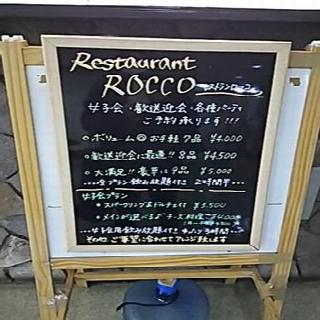 Restaurant
ROCCO
女子会・歓送近会・各種パーティ
ご予約承ります!!!
・ボリューム◎お手軽7品 ¥4,000
・歓送迎会に最適!! 8品 ¥4,500
・大満足!! 豪華に9品 ¥5,000
全プラン飲み放題付き 2時間半
女子会プラン
・スパークリング&ドルチェ付 ¥3,500
・メインが選べるよ
女子会用飲み放題付き 3時間
その他ご要望に合わせてアレンジ致します